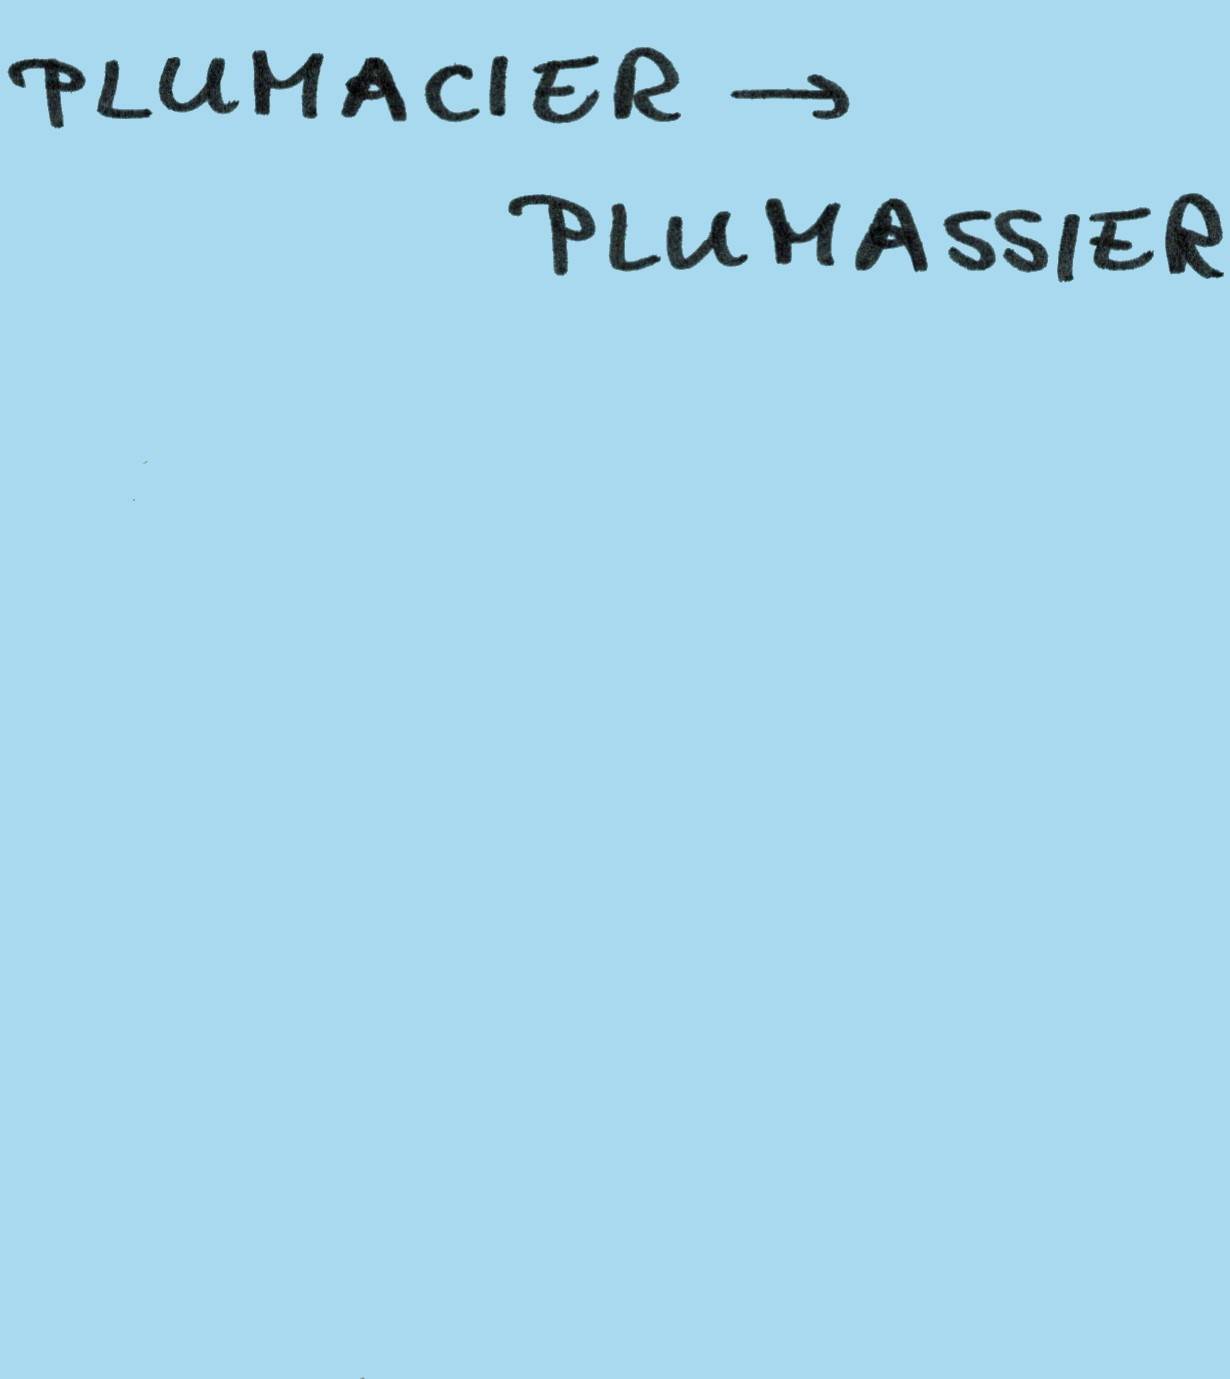 PLUMACIER →
PLUMASSIER